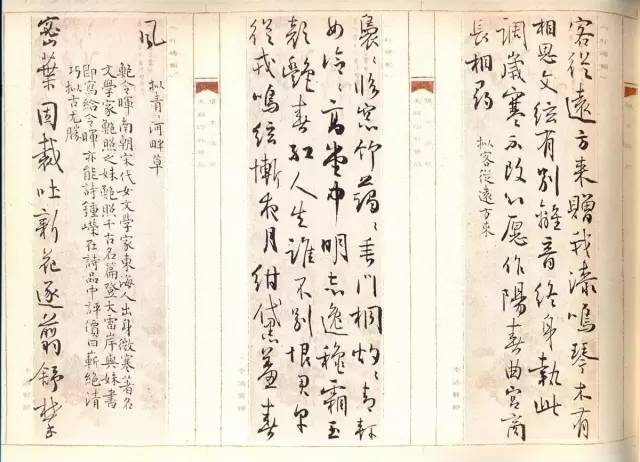 客從遠方來贈我漆鳴琴木有
相思文絃有別離音終身執此
調歲寒不改心願作陽春曲宮商
長相尋
擬客從遠方來
裊〻臨窓竹藹〻垂門桐灼〻青軒
女泠〻高堂中明志逸秋霜玉
顏艷春紅人生誰不別恨君早
從戎鳴絃慚夜月紺黛羞春
風
擬青〻河畔草
鮑令暉南朝宋代女文學家東海人出身微寒著名
文學家鮑照之妹鮑照千古名篇登大雷岸與妹書
即寫給令暉亦能詩鍾嶸在詩品中評價曰嶄絕清
巧擬古尤勝
密葉因裁吐新花逐翦舒攀